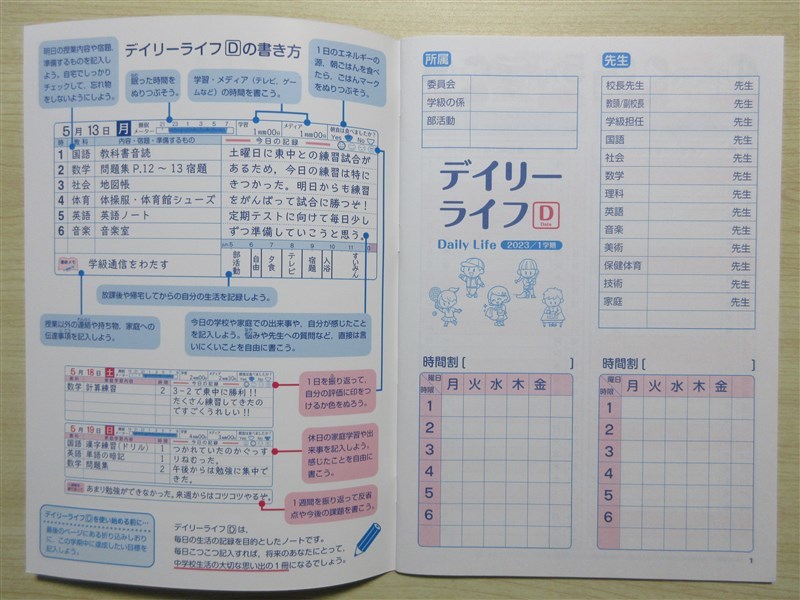 デイリーライフDの書き方
明日の授業内容や宿題、
準備するものを記入し
よう。自宅でしっかり
チェックして、忘れ物
をしないようにしよう。
眠った時間を
ぬりつぶそう。
学習・メディア(テレビ、ゲー
ムなど)の時間を書こう。
1日のエネルギーの
源、朝ごはんを食べ
たら、ごはんマーク
をぬりつぶそう。
5月13日 月
睡眠メーター 21 23 1 3 5 7
学習 1時間00分
メディア 1時間00分
朝食は食べましたか? Yes No
教科 内容・宿題・準備するもの
今日の記録
1 国語 教科書音読
2 数学 問題集P.12～13宿題
3 社会 地図帳
4 体育 体操服・体育館シューズ
5 英語 英語ノート
6 音楽 音楽室
土曜日に東中との練習試合が
あるため、今日の練習は特に
きつかった。明日からも練習
をがんばって試合に勝つぞ!
定期テストに向けて毎日少し
ずつ準備していこうと思う。
5 6 7 8 9 10 11
部活動 自由 夕食 テレビ 宿題 入浴 すいみん
学級通信をわたす
放課後や帰宅してからの自分の生活を記録しよう。
授業以外の連絡や持ち物、家庭への
伝達事項を記入しよう。
今日の学校や家庭での出来事や、自分が感じたこと
を記入しよう。悩みや先生への質問など、直接は言
いにくいことを自由に書こう。
5月18日 土
今日の記録
数学 計算練習 2
3-2で東中に勝利!!
たくさん練習してきたの
ですごくうれしい!!
1日を振り返って、
自分の評価に印をつ
けるか色をぬろう。
5月19日 日
今日の記録
国語 漢字練習(ドリル) 1
英語 単語の暗記 1
数学 問題集 2
つかれていたのかぐっす
りねむった。
午後からは勉強に集中で
きた。
あまり勉強ができなかった。来週からはコツコツやるぞ。
休日の家庭学習や出
来事を記入しよう。
感じたことを自由に
書こう。
1週間を振り返って反省
点や今後の課題を書こう。
デイリーライフDを使い始める前に…
最後のページにある折り込みしおり
に、この学期中に達成したい目標を
記入しよう。
デイリーライフDは、
毎日の生活の記録を目的としたノートです。
毎日こつこつ記入すれば、将来のあなたにとって、
中学校生活の大切な思い出の1冊になるでしょう。
所属
委員会
学級の係
部活動
デイリー
ライフD
Daily Life 2023/1学期
先生
校長先生 先生
教頭/副校長 先生
学級担任 先生
国語 先生
社会 先生
数学 先生
理科 先生
英語 先生
音楽 先生
美術 先生
保健体育 先生
技術 先生
家庭 先生
時間割[ ]
曜日 時限 月 火 水 木 金
1
2
3
4
5
6
時間割[ ]
曜日 時限 月 火 水 木 金
1
2
3
4
5
6
1